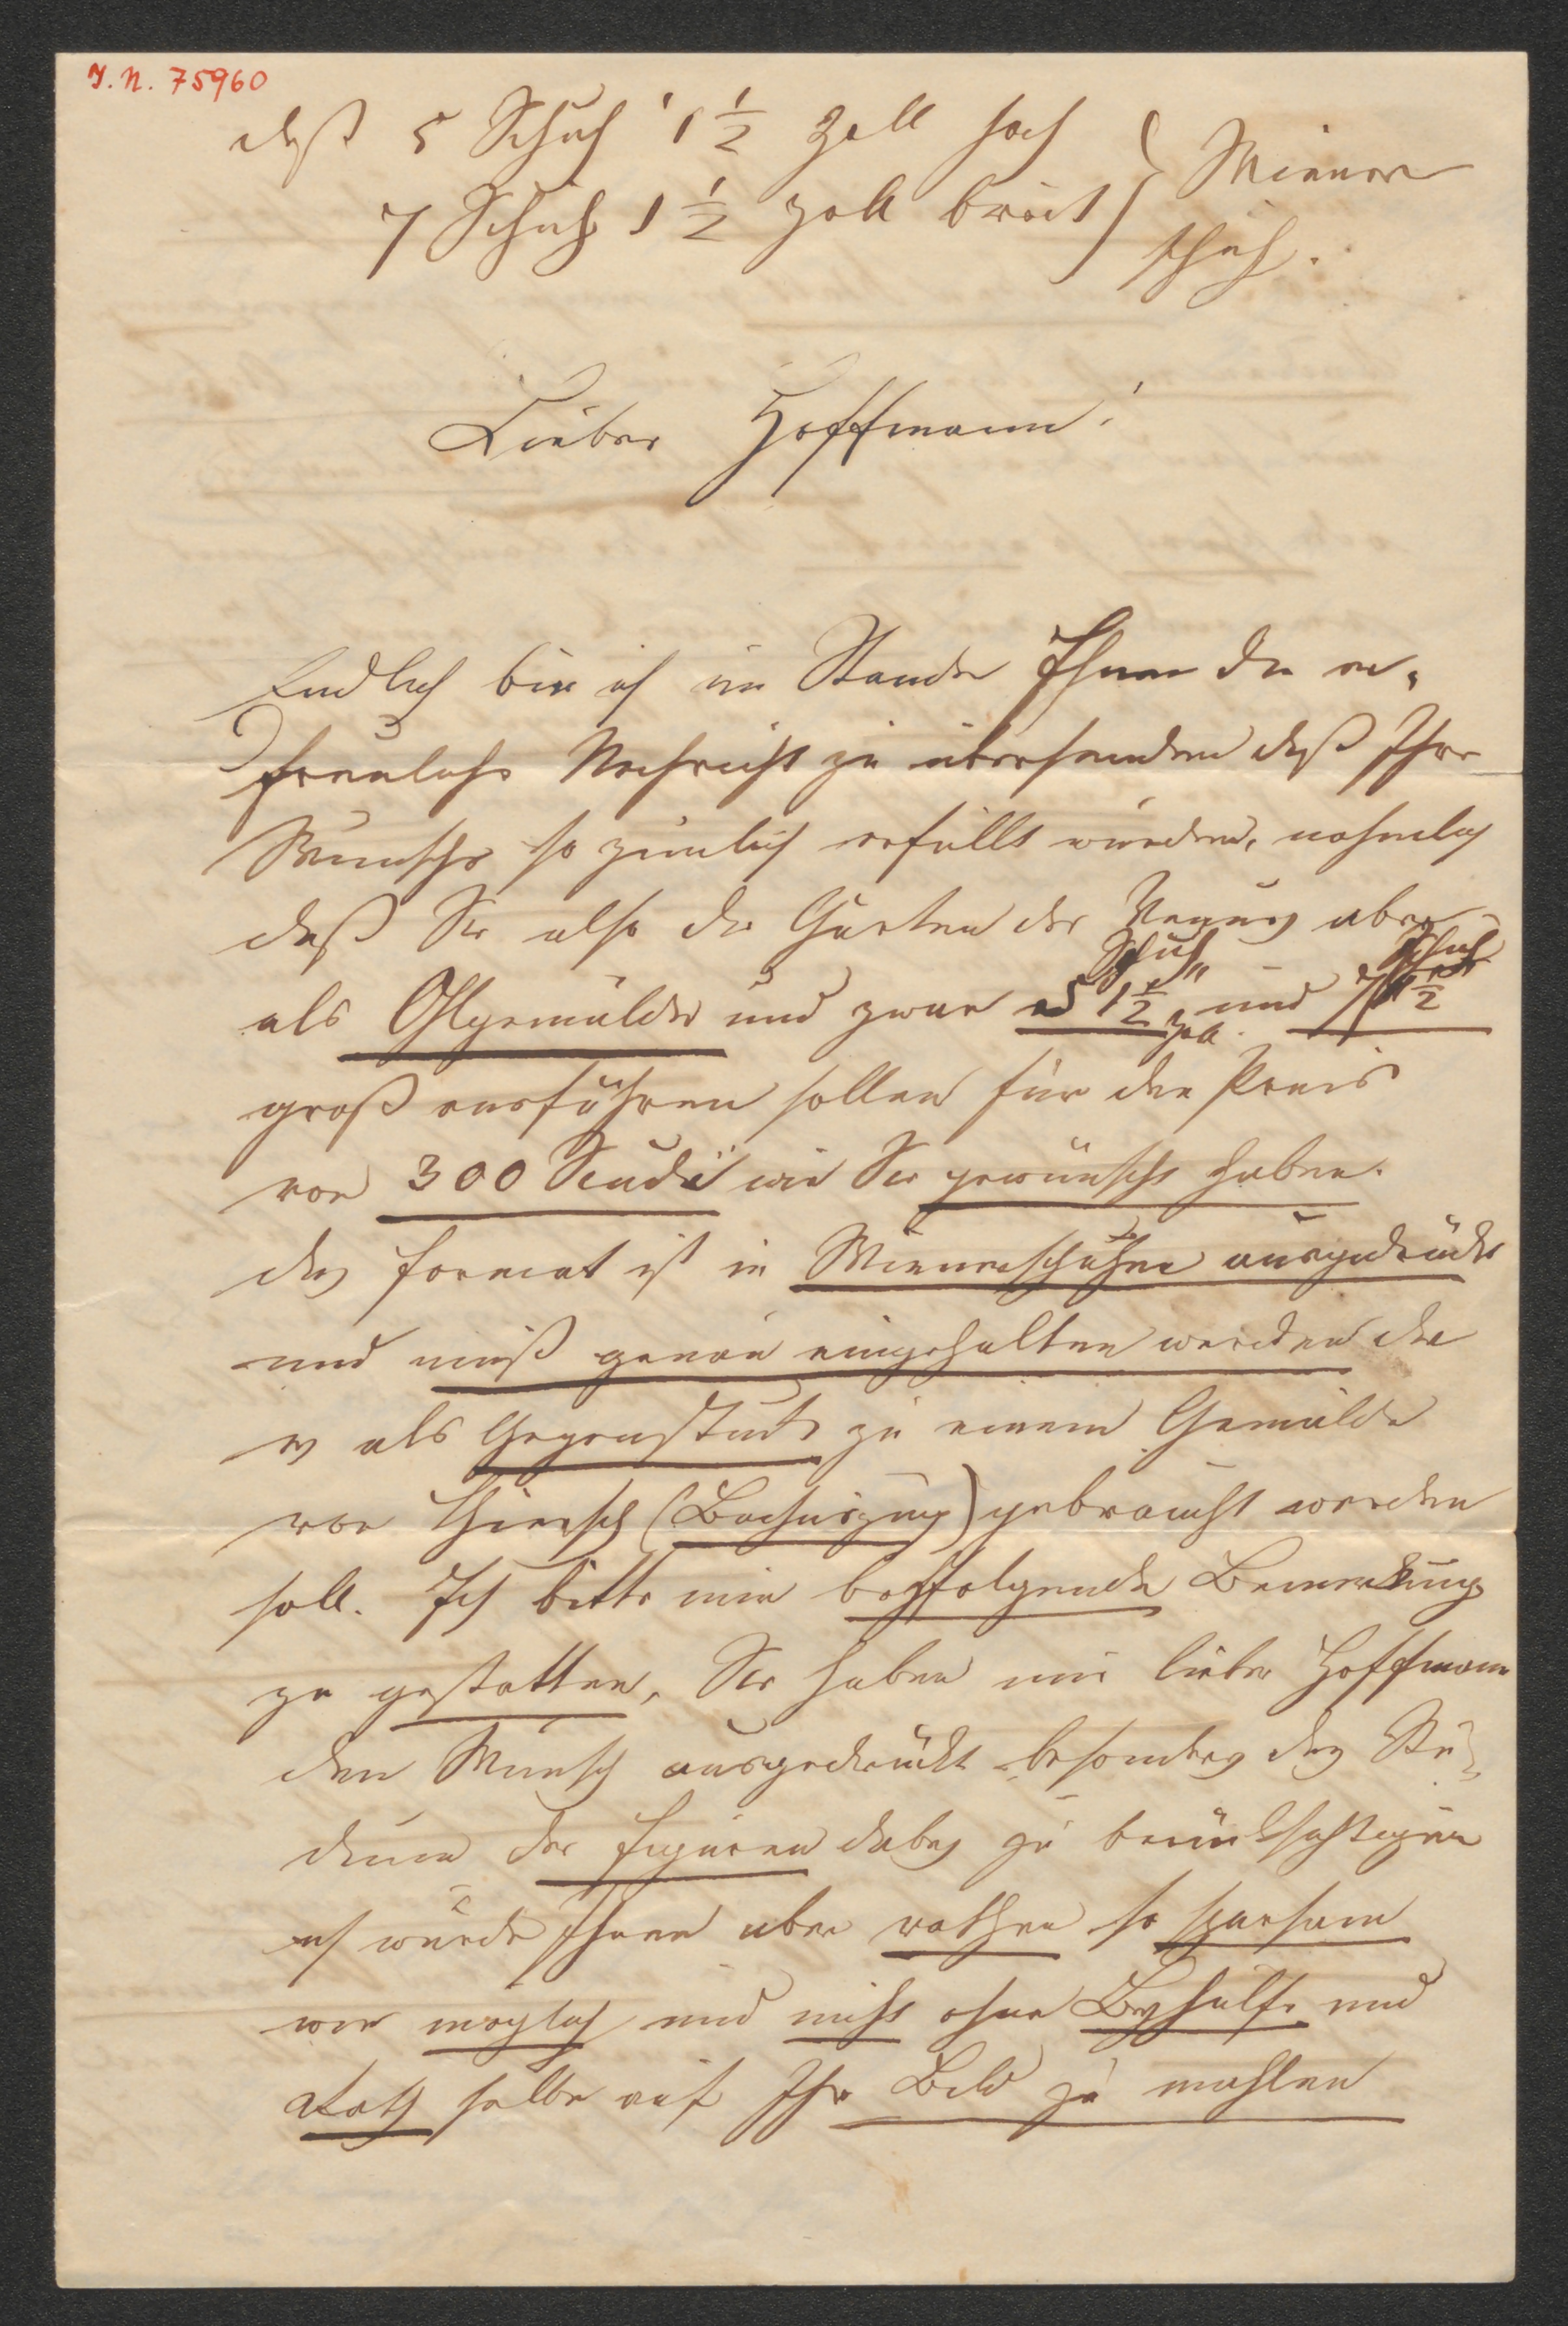 I. N. 75960
daß 5 Schuh 1 1/2 Zoll hoch
7 Schuh 1 1/2 Zoll breit } Wiener
schuh.
Lieber Hoffmann!
Endlich bin ich im Stande Ihnen die er-
freuliche Nachricht zu übersenden daß Ihre
Wünsche so zimlich erfüllt wurden, nehmlich
daß Sie also die Gärten der Venus aber
als Ohlgemälde und zwar 5 Schuh 1 1/2 Zoll und 7 Schuh 1 1/2
groß ausführen sollen für den Preis
von 300 Scudi wie Sie gewünscht haben.
das Format ist in Wienerschuhen ausgedrückt
und muß genau eingehalten werden da
es als Gegenstück zu einem Gemälde
von (Bachuszug) gebraucht werden
soll. Ich bitte mir beyfolgende Bemerkung
zu gestatten, Sie haben mir lieber Hoffmann
den Wunsch ausgedrückt besonders das Stu-
dium der Figuren dabey zu berücksichtigen
ich würde Ihnen aber rathen so sparsam
wie möglich und nicht ohne Beyhülfe und
Rath selbe auf Ihr Bild zu mahlen